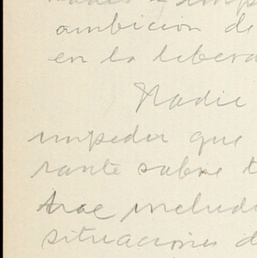 ambicion de
en la libera
Nadie
impedir que
rante sobre t
trae includi
situaciones d